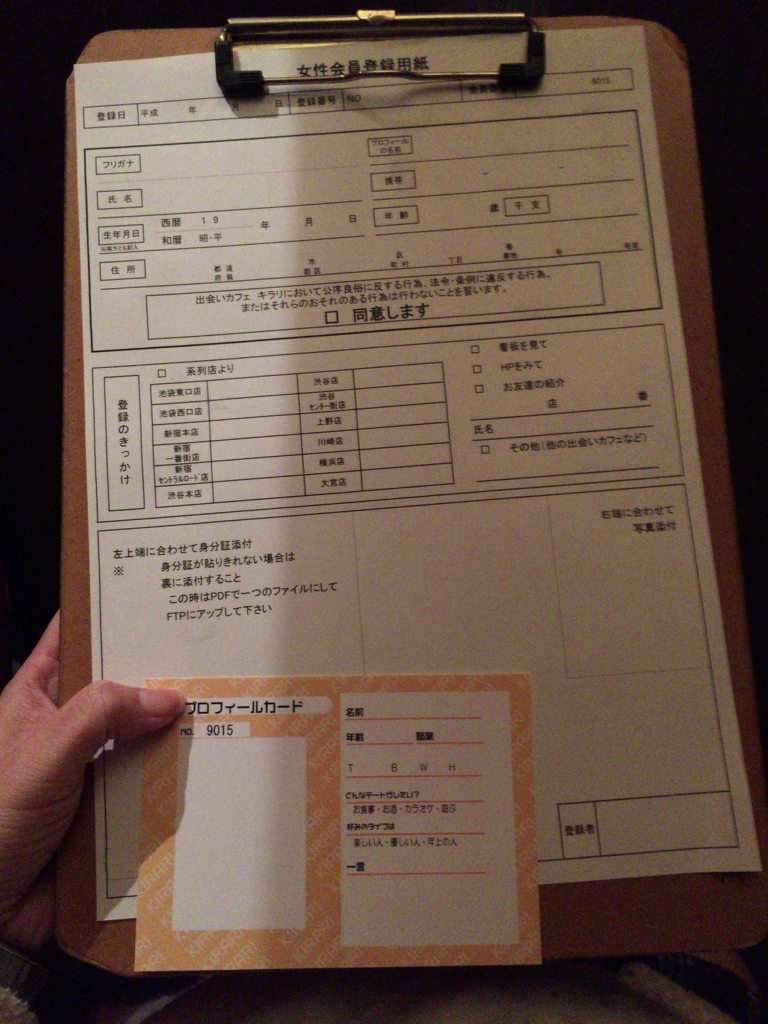 女性会員登録用紙
登録日 平成 年 月 日 登録番号 NO 9015
フリガナ プロフィールの名前
氏名 携帯 - -
生年月日 西暦 19 年 月 日 年齢 歳 干支
和暦 昭・平
住所 都道府県 市 区町村 丁目 番 号 号室
出会いカフェ キラリにおいて公序良俗に反する行為、法令・条例に違反する行為、
またはそれらのおそれのある行為は行わないことを誓います。
□ 同意します
登録のきっかけ
□ 系列店より
池袋東口店 渋谷店
池袋西口店 渋谷センター街店
新宿本店 上野店
新宿一番街店 川崎店
新宿セントラルロード店 横浜店
渋谷本店 大宮店
□ 看板を見て
□ HPをみて
□ お友達の紹介
店 番
氏名
□ その他(他の出会いカフェなど)
左上端に合わせて身分証添付
※ 身分証が貼りきれない場合は
裏に添付すること
この時はPDFで一つのファイルにして
FTPにアップして下さい
右端に合わせて
写真添付
登録者
プロフィールカード
NO. 9015
名前
年齢 職業
T B W H
どんなデートがしたい?
お食事・お酒・カラオケ・遊ぶ
好みのタイプは
楽しい人・優しい人・年上の人
一言
KIRARI